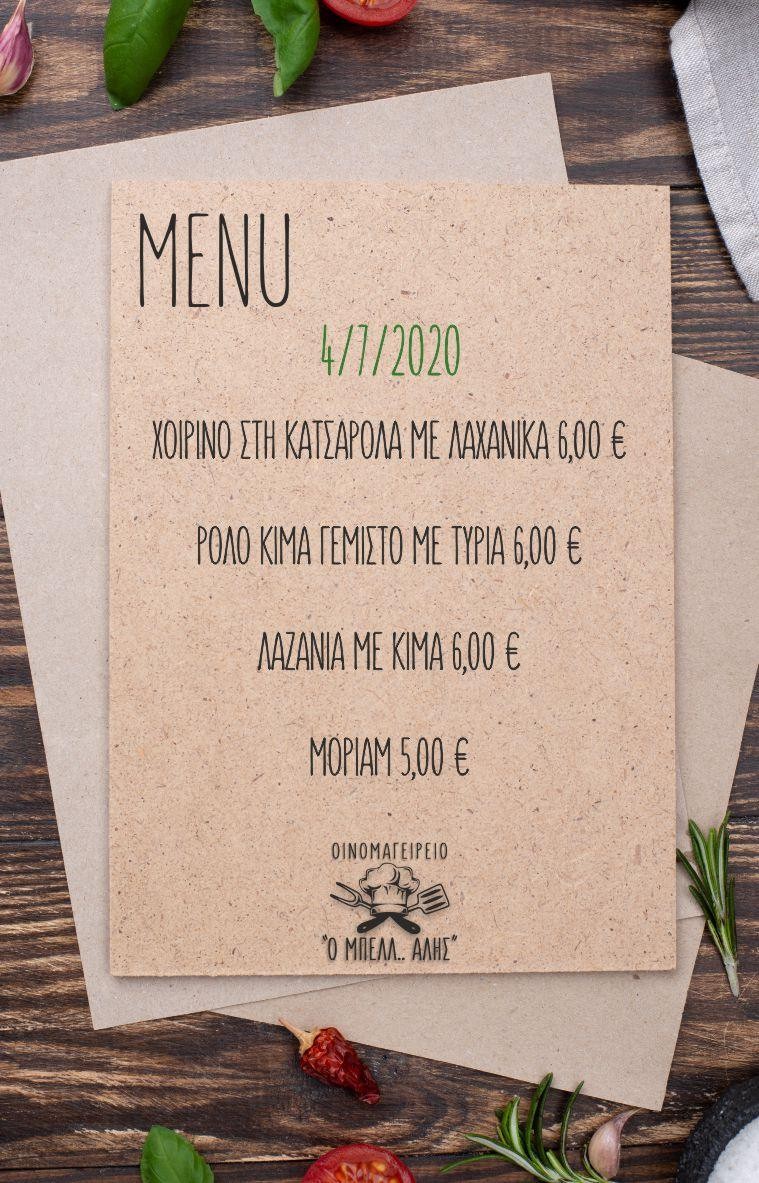 MENU
4/7/2020
ΧΟΙΡΙΝΟ ΣΤΗ ΚΑΤΣΑΡΟΛΑ ΜΕ ΛΑΧΑΝΙΚΑ 6,00 €
ΡΟΛΟ ΚΙΜΑ ΓΕΜΙΣΤΟ ΜΕ ΤΥΡΙΑ 6,00 €
ΛΑΖΑΝΙΑ ΜΕ ΚΙΜΑ 6,00 €
ΜΟΡΙΑΜ 5,00 €
ΟΙΝΟΜΑΓΕΙΡΕΙΟ
"Ο ΜΠΕΛΛ.. ΑΛΗΣ"